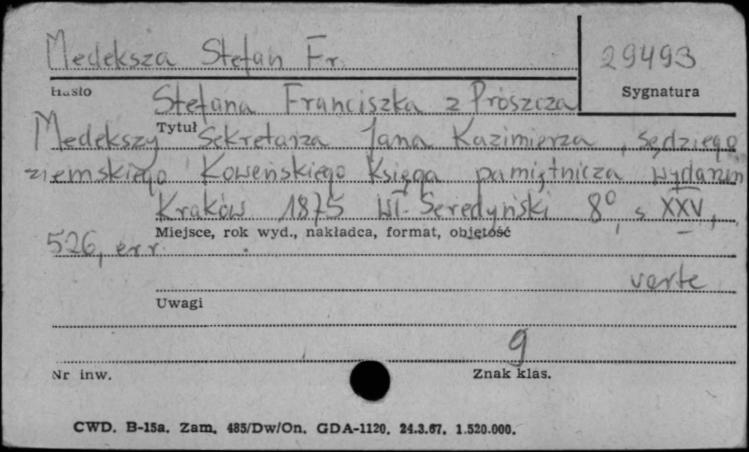 Medeksza Stefan Fr.
29493
Hasło
Sygnatura
Stefana Franciszka z Prószcza
Tytuł
Medekszy Sekretarza Jana Kazimierza, sędziego
ziemskiego Kowenskiego Księga pamiętnicza wydanin
Kraków 1875 Wł. Seredyński 8°, s XXV,
Miejsce, rok wyd., nakładca, format, objętość
526, err.
verte
Uwagi
9
Nr inw.
Znak klas.
CWD. B-15a. Zam. 485/Dw/On. GDA-1120. 24.3.67. 1.520.000.